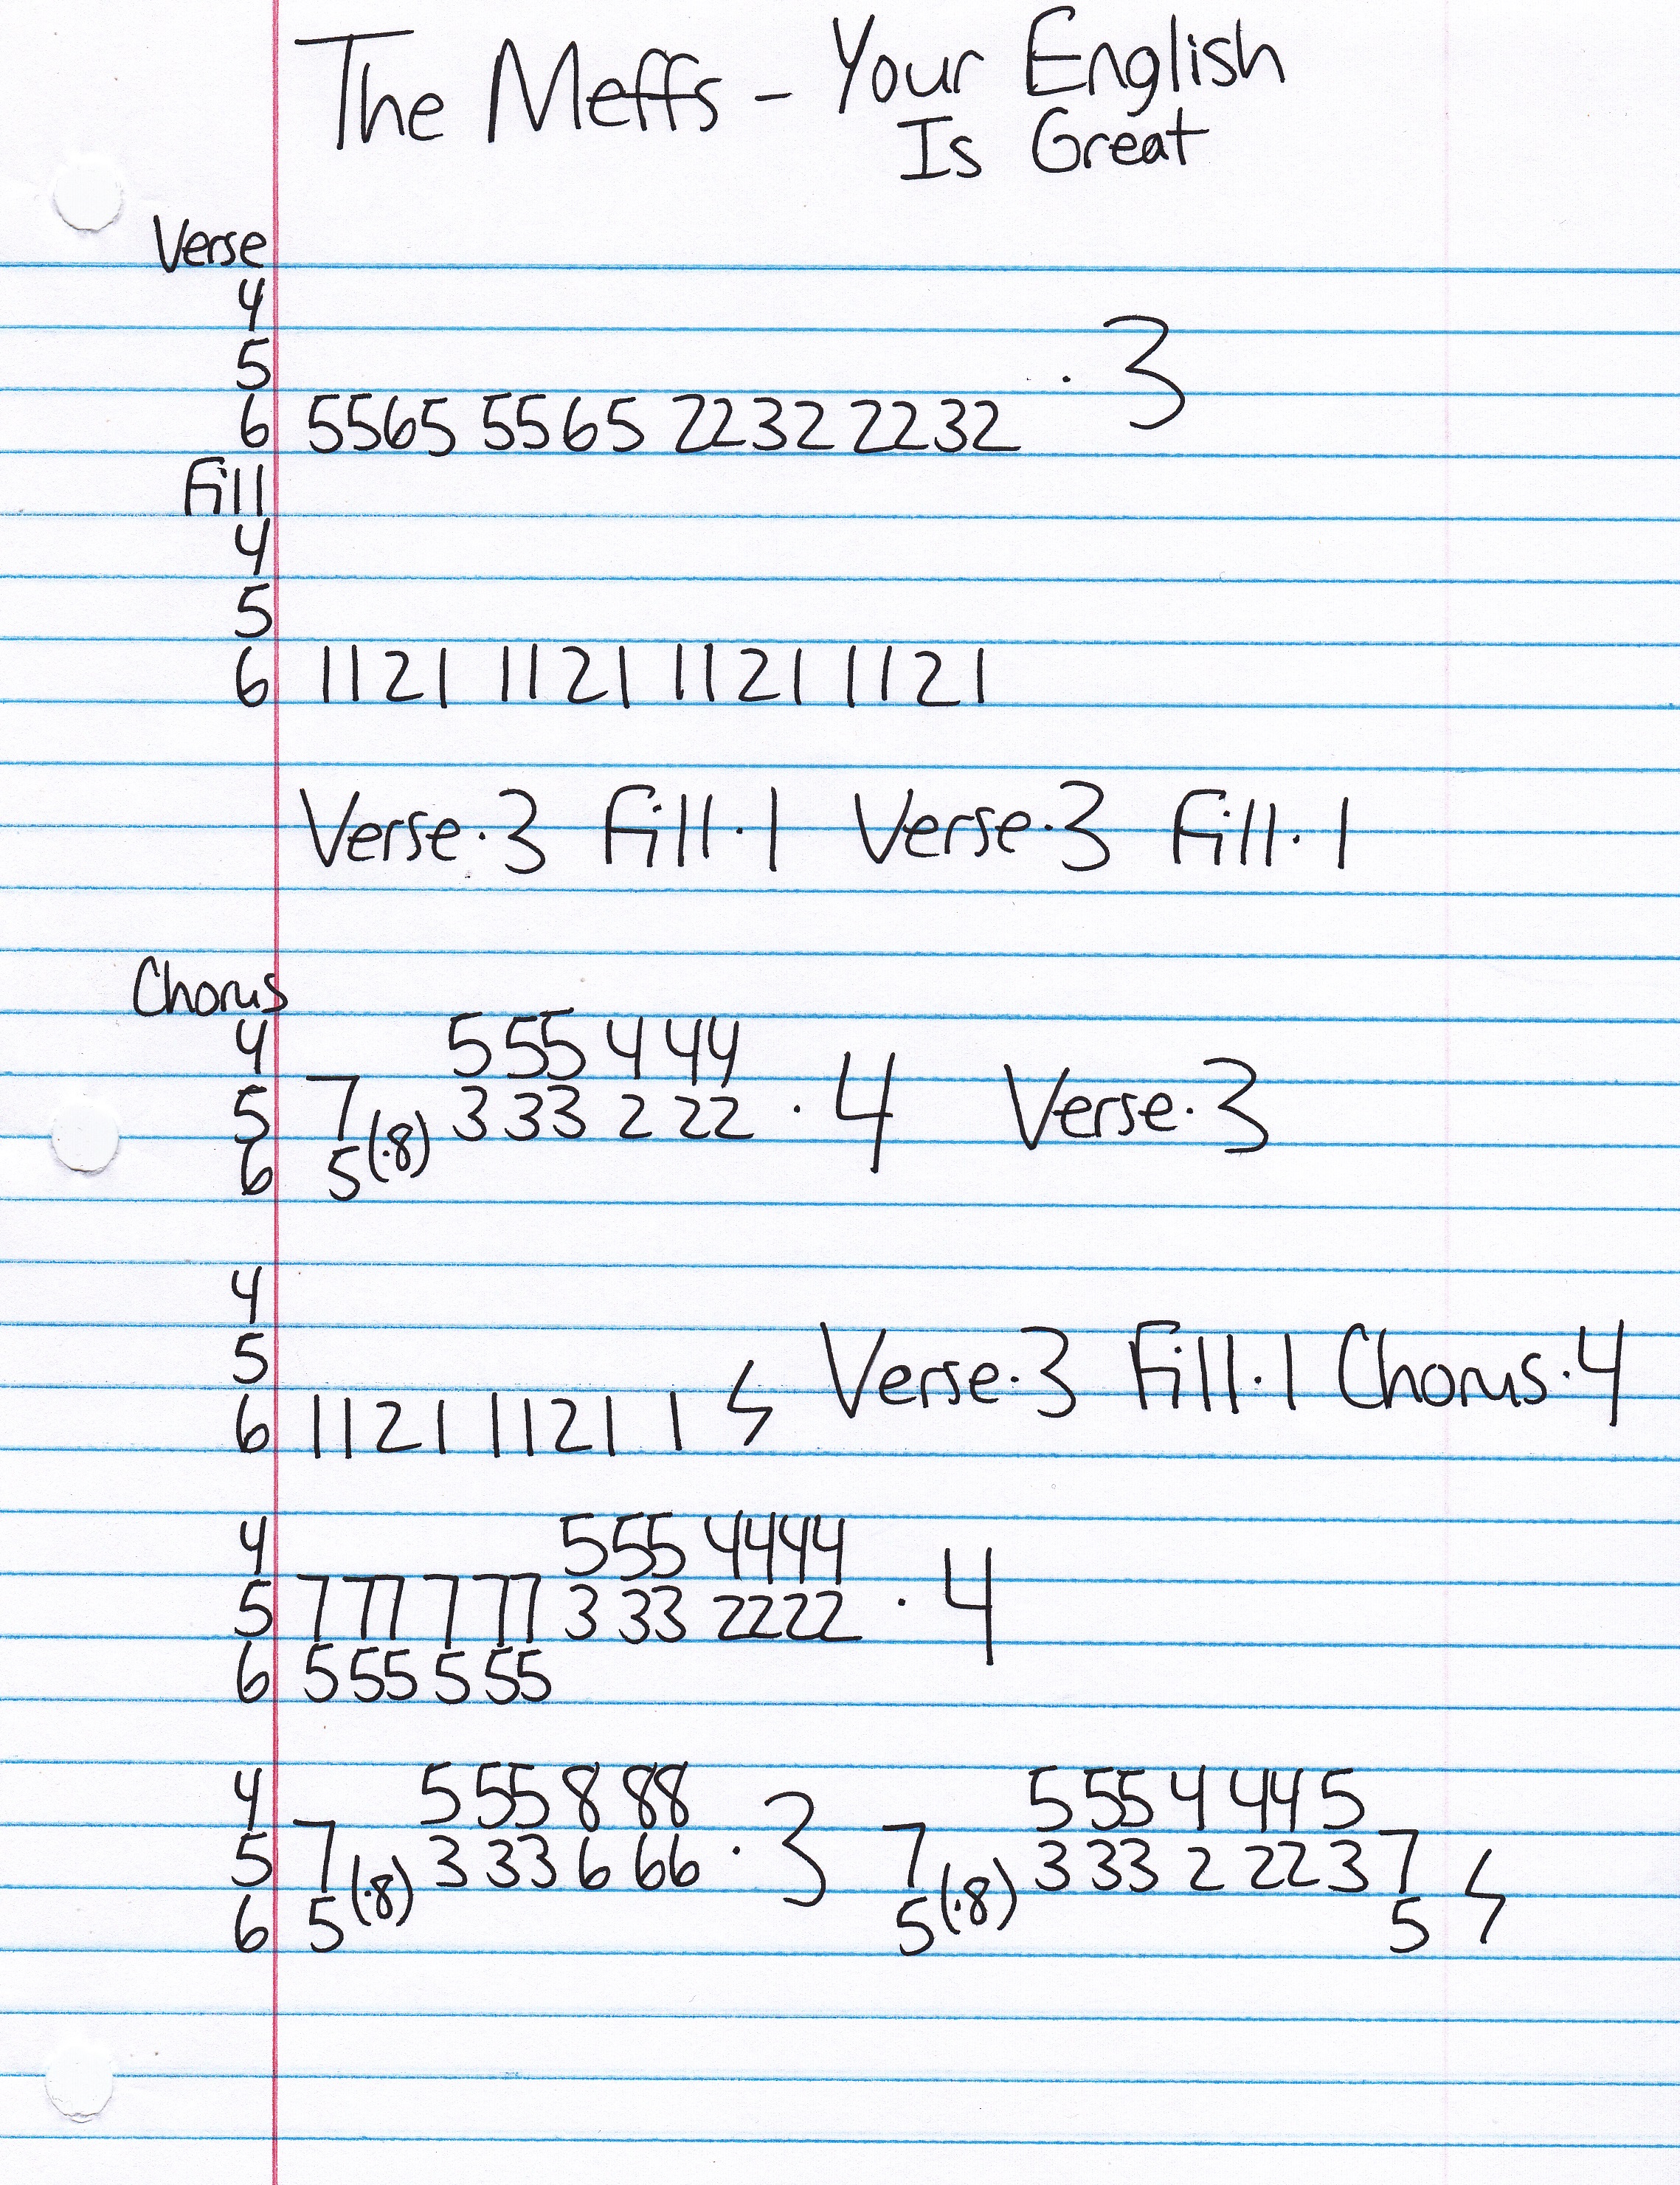 The Meffs - Your English
Is Great
Verse
4
5
6 5565 5565 2232 2232 · 3
Fill
4
5
6 1121 1121 1121 1121
Verse·3 Fill·1 Verse·3 Fill·1
Chorus
4 5 55 4 44
5 7 (·8) 3 33 2 22 · 4 Verse·3
6 5
4
5
6 1121 1121 1 ϟ Verse·3 Fill·1 Chorus·4
4 5 55 4444
5 7 77 7 77 3 33 2222 · 4
6 5 55 5 55
4 5 55 8 88 5 55 4 44 5
5 7 (·8) 3 33 6 66 · 3 7 (·8) 3 33 2 22 3 7 ϟ
6 5 5 5